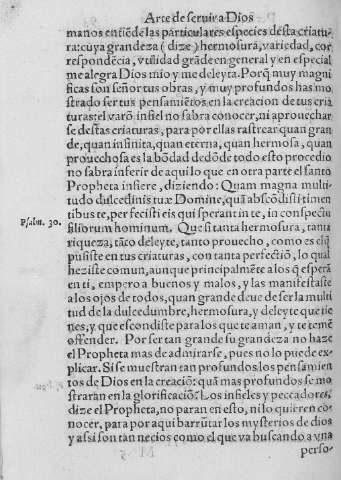 Arte de seruir a Dios
manos entiẽde las particulares especies desta criatu
ra: cuya grandeza (dize) hermosura, variedad, cor
respondẽcia, y vtilidad grãde en general y en especial
me alegra Dios mio y me deleyta. Porq̃ muy magni
ficas son señor tus obras, y muy profundos has mo
strado ser tus pensamiẽtos en la creacion de tus cria
turas: el varõ infiel no sabra conocer, ni aprouechar
se destas criaturas, para por ellas rastrear quan gran
de, quan infinita, quan eterna, quan hermosa, quan
prouechosa es la bõdad dedõde todo esto procedio
no sabra inferir de aqui lo que en otra parte el santo
Propheta infiere, diziendo: Quam magna multi
tudo dulcedinis tuæ Domine, quã abscõdisti timen
tibus te, perfecisti eis qui sperant in te, in conspectu
Psalm. 30.
filiorum hominum. Que si tanta hermosura, tanta
riqueza, tãto deleyte, tanto prouecho, como es el q̃
pusiste en tus criaturas, con tanta perfectiõ, lo qual
heziste comun, aunque principalmẽte a los q̃ esperã
en ti, empero a buenos y malos, y las manifestaste
a los ojos de todos, quan grande deue de ser la multi
tud de la dulcedumbre, hermosura, y deleyte que tie
nes, y que escondiste para los que te aman, y te temẽ
offender. Por ser tan grande su grandeza no haze
el Propheta mas de admirarse, pues no lo puede ex
plicar. Si se muestran tan profundos los pensãmien
tos de Dios en la creaciõ: quã mas profundos se mo
straran en la glorificaciõ? Los infieles y peccadores,
dize el Propheta, no paran en esto, ni lo quieren co
nocer, para por aqui barrũtar los mysterios de dios
y assi son tan necios como el que va buscando a vna
perso-